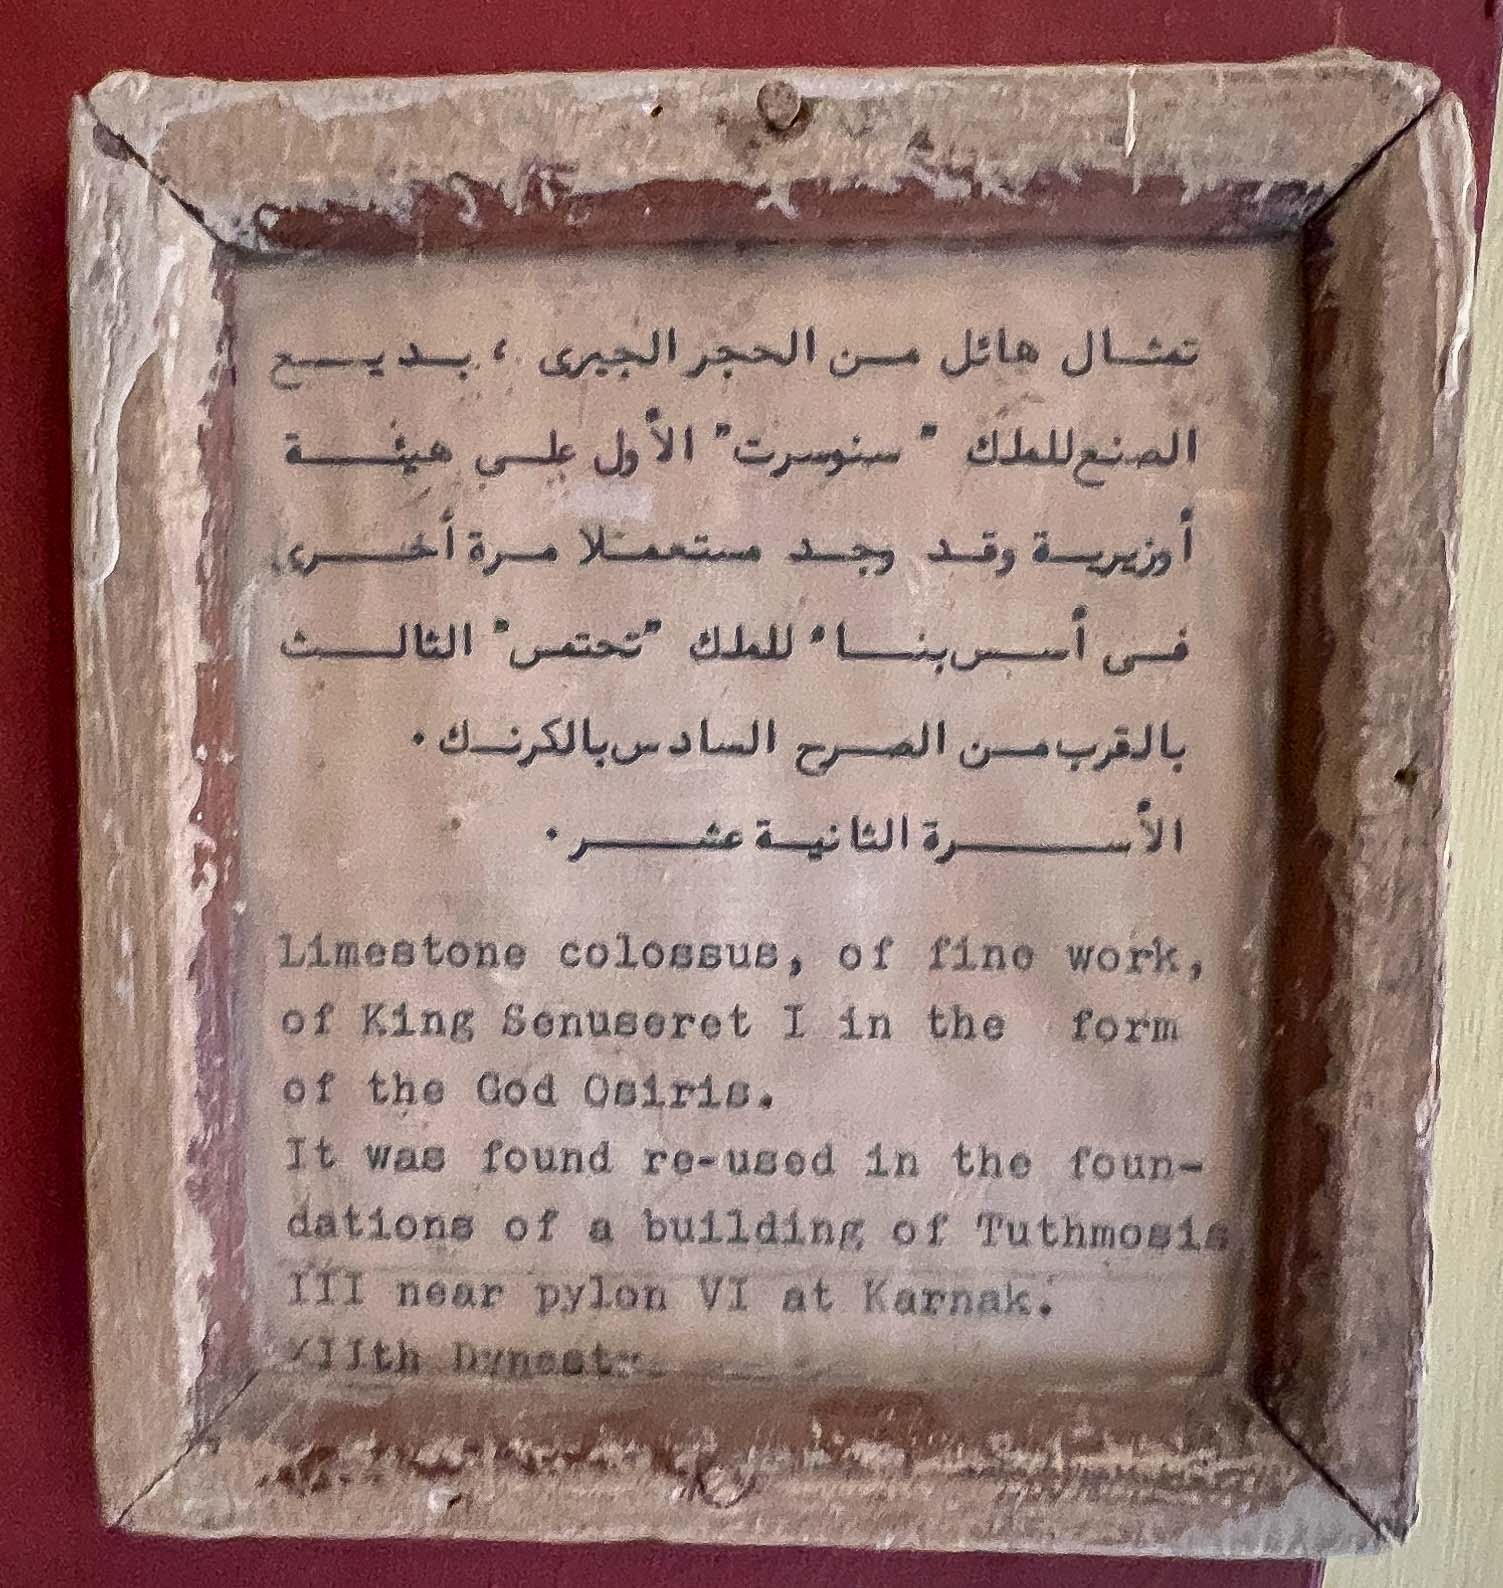 تمثال هائل من الحجر الجيرى ، بديع
الصنع للملك " سنوسرت" الأول على هيئة
أوزيرية وقد وجد مستعملا مرة أخرى
فى أسس بناء للملك "تحتمس" الثالث
بالقرب من الصرح السادس بالكرنك .
الأسرة الثانية عشر .
Limestone colossus, of fine work,
of King Senuseret I in the form
of the God Osiris.
It was found re-used in the foun-
dations of a building of Tuthmosis
III near pylon VI at Karnak.
XIIth Dynasty.